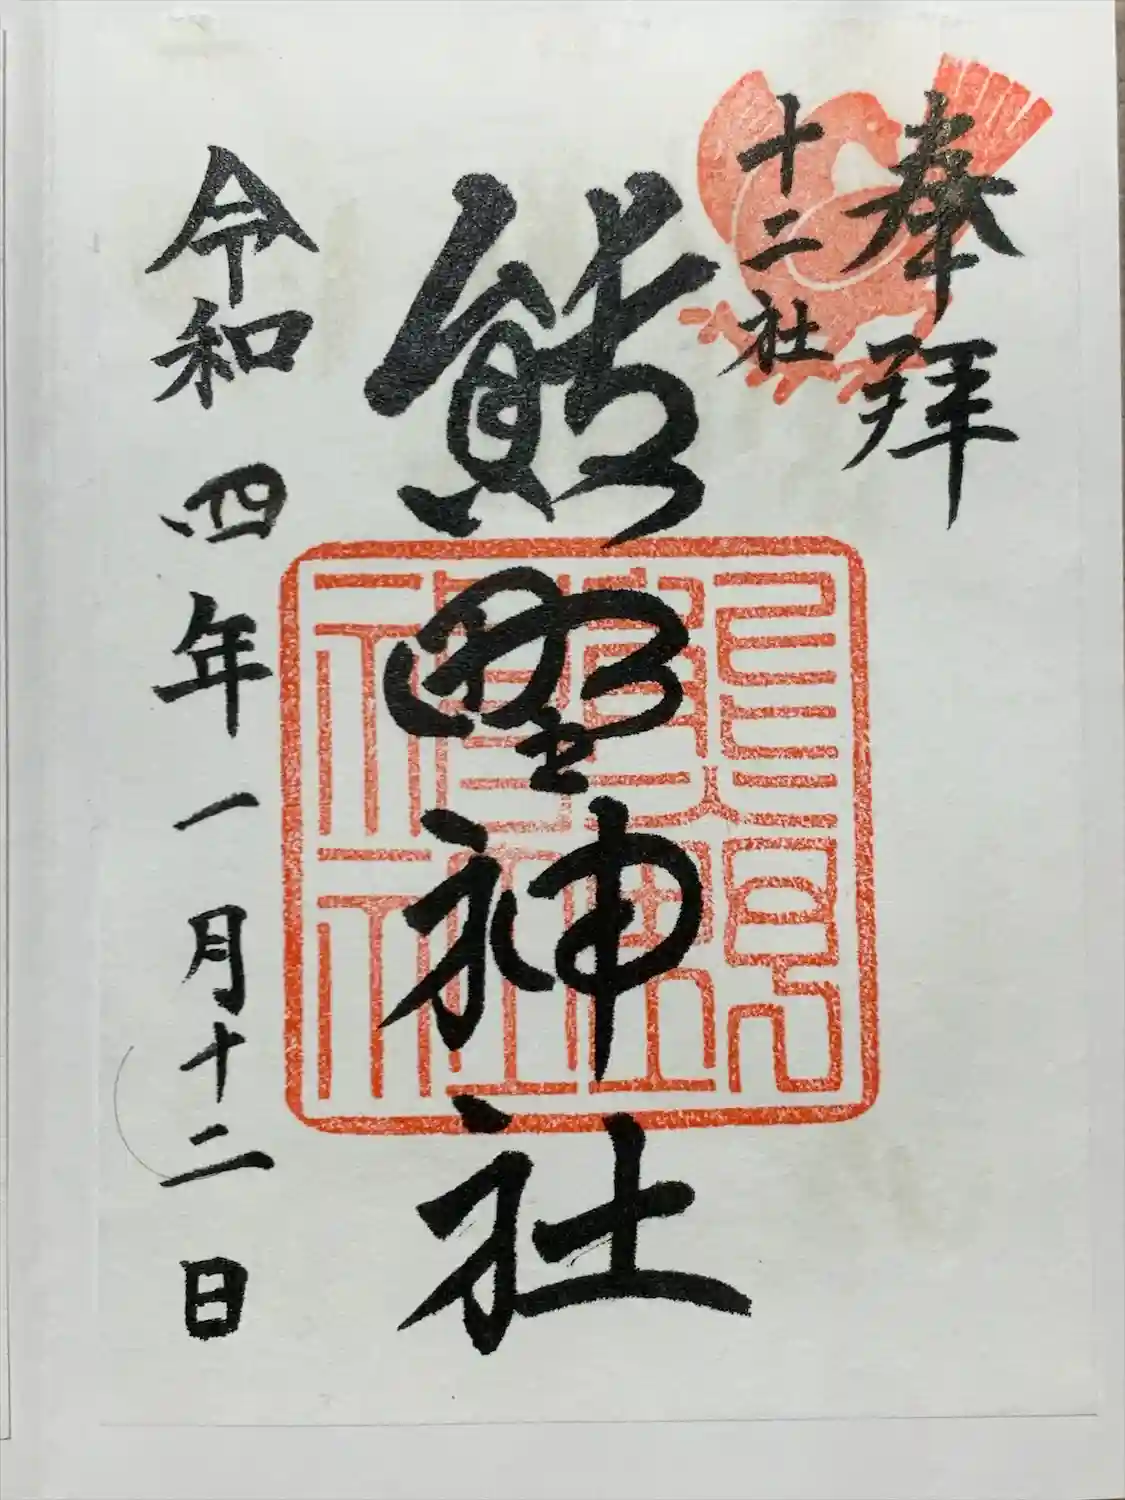 奉拝
十二社
熊野神社
令和四年一月十二日